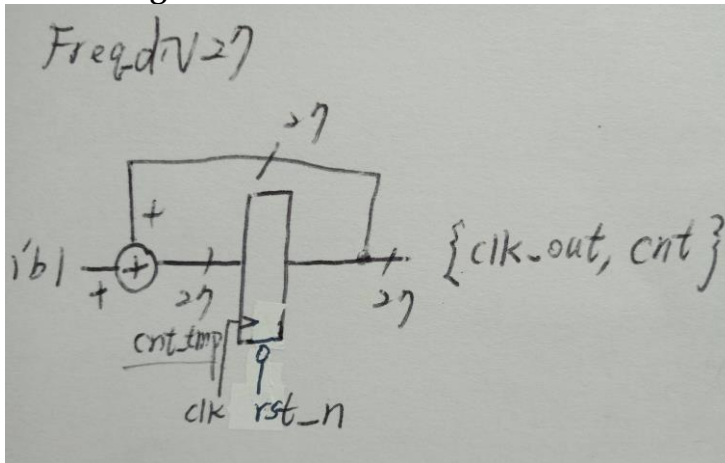 Freq_div27
27
+
1'b1
+
+
27
27
{clk_out, cnt}
cnt_tmp
clk
rst_n